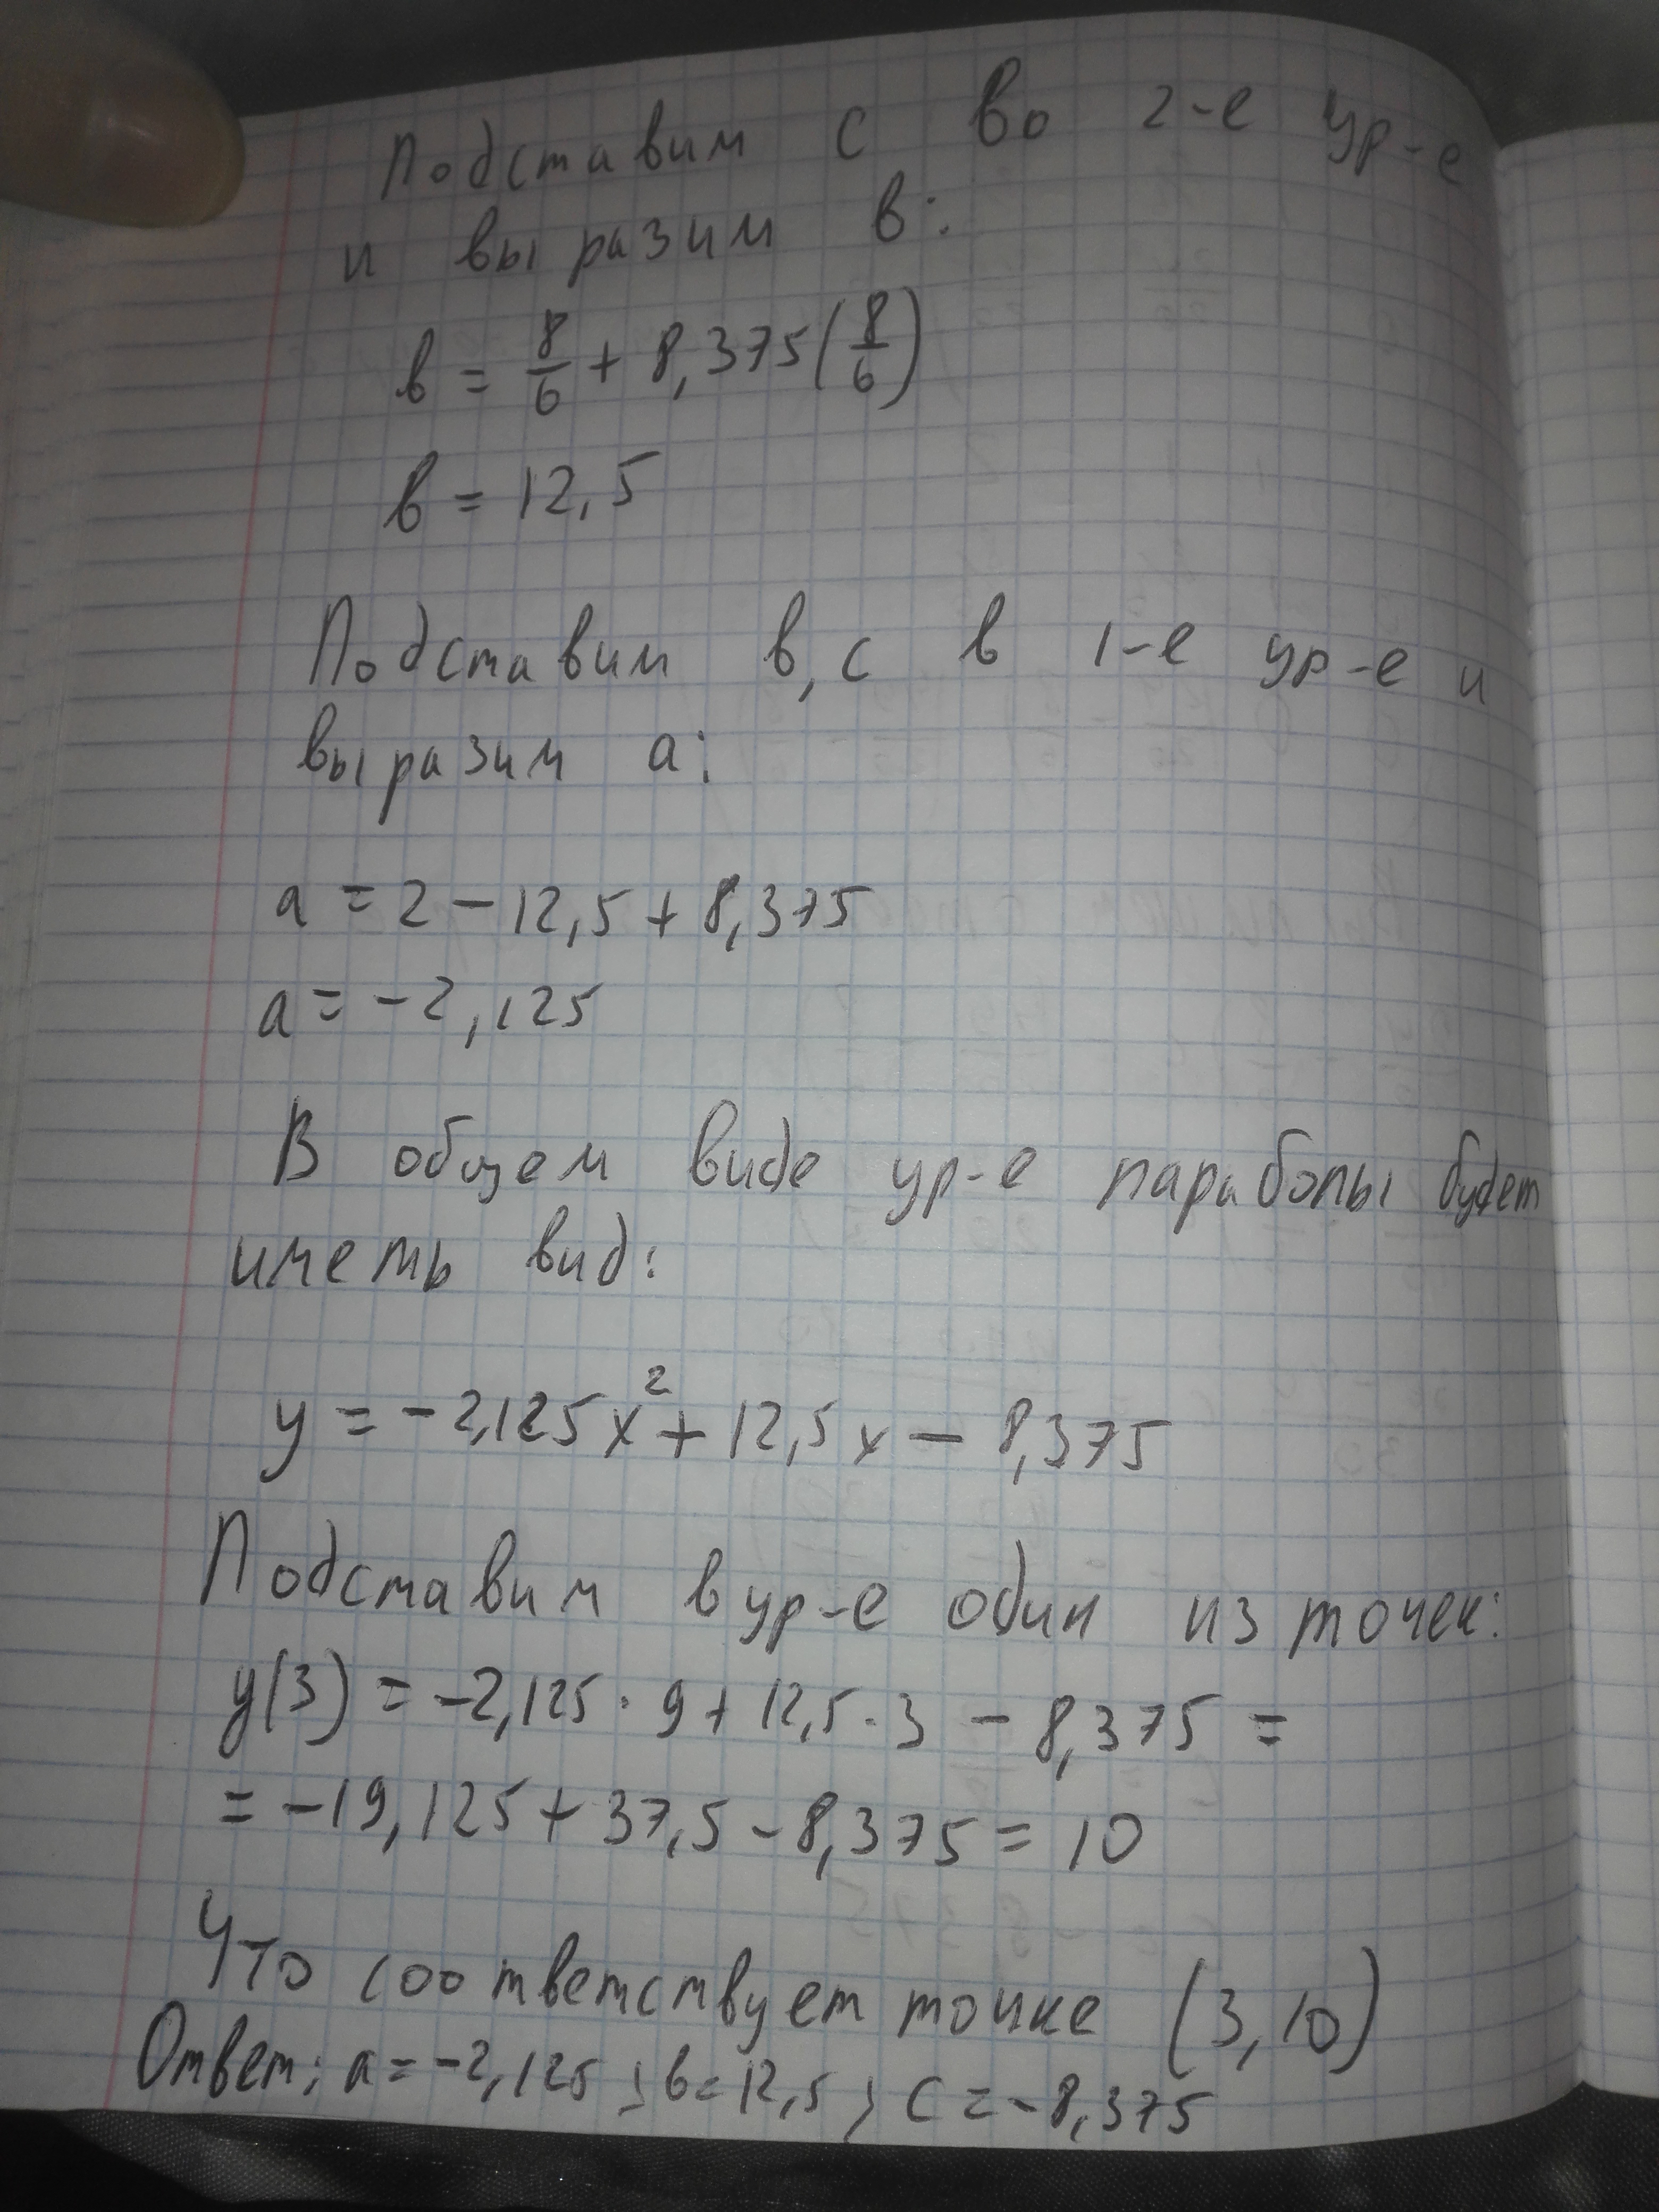 Подставим с во 2-е ур-е
и выразим в:
в = 8/6 + 8,375(8/6)
в = 12,5
Подставим в,с в 1-е ур-е и
выразим а:
а = 2 - 12,5 + 8,375
а = -2,125
В общем виде ур-е параболы будет
иметь вид:
y = -2,125x² + 12,5x - 8,375
Подставим в ур-е один из точек:
y(3) = -2,125 · 9 + 12,5 · 3 - 8,375 =
= -19,125 + 37,5 - 8,375 = 10
Что соответствует точке (3,10)
Ответ: а = -2,125 ; в = 12,5 ; с = -8,375